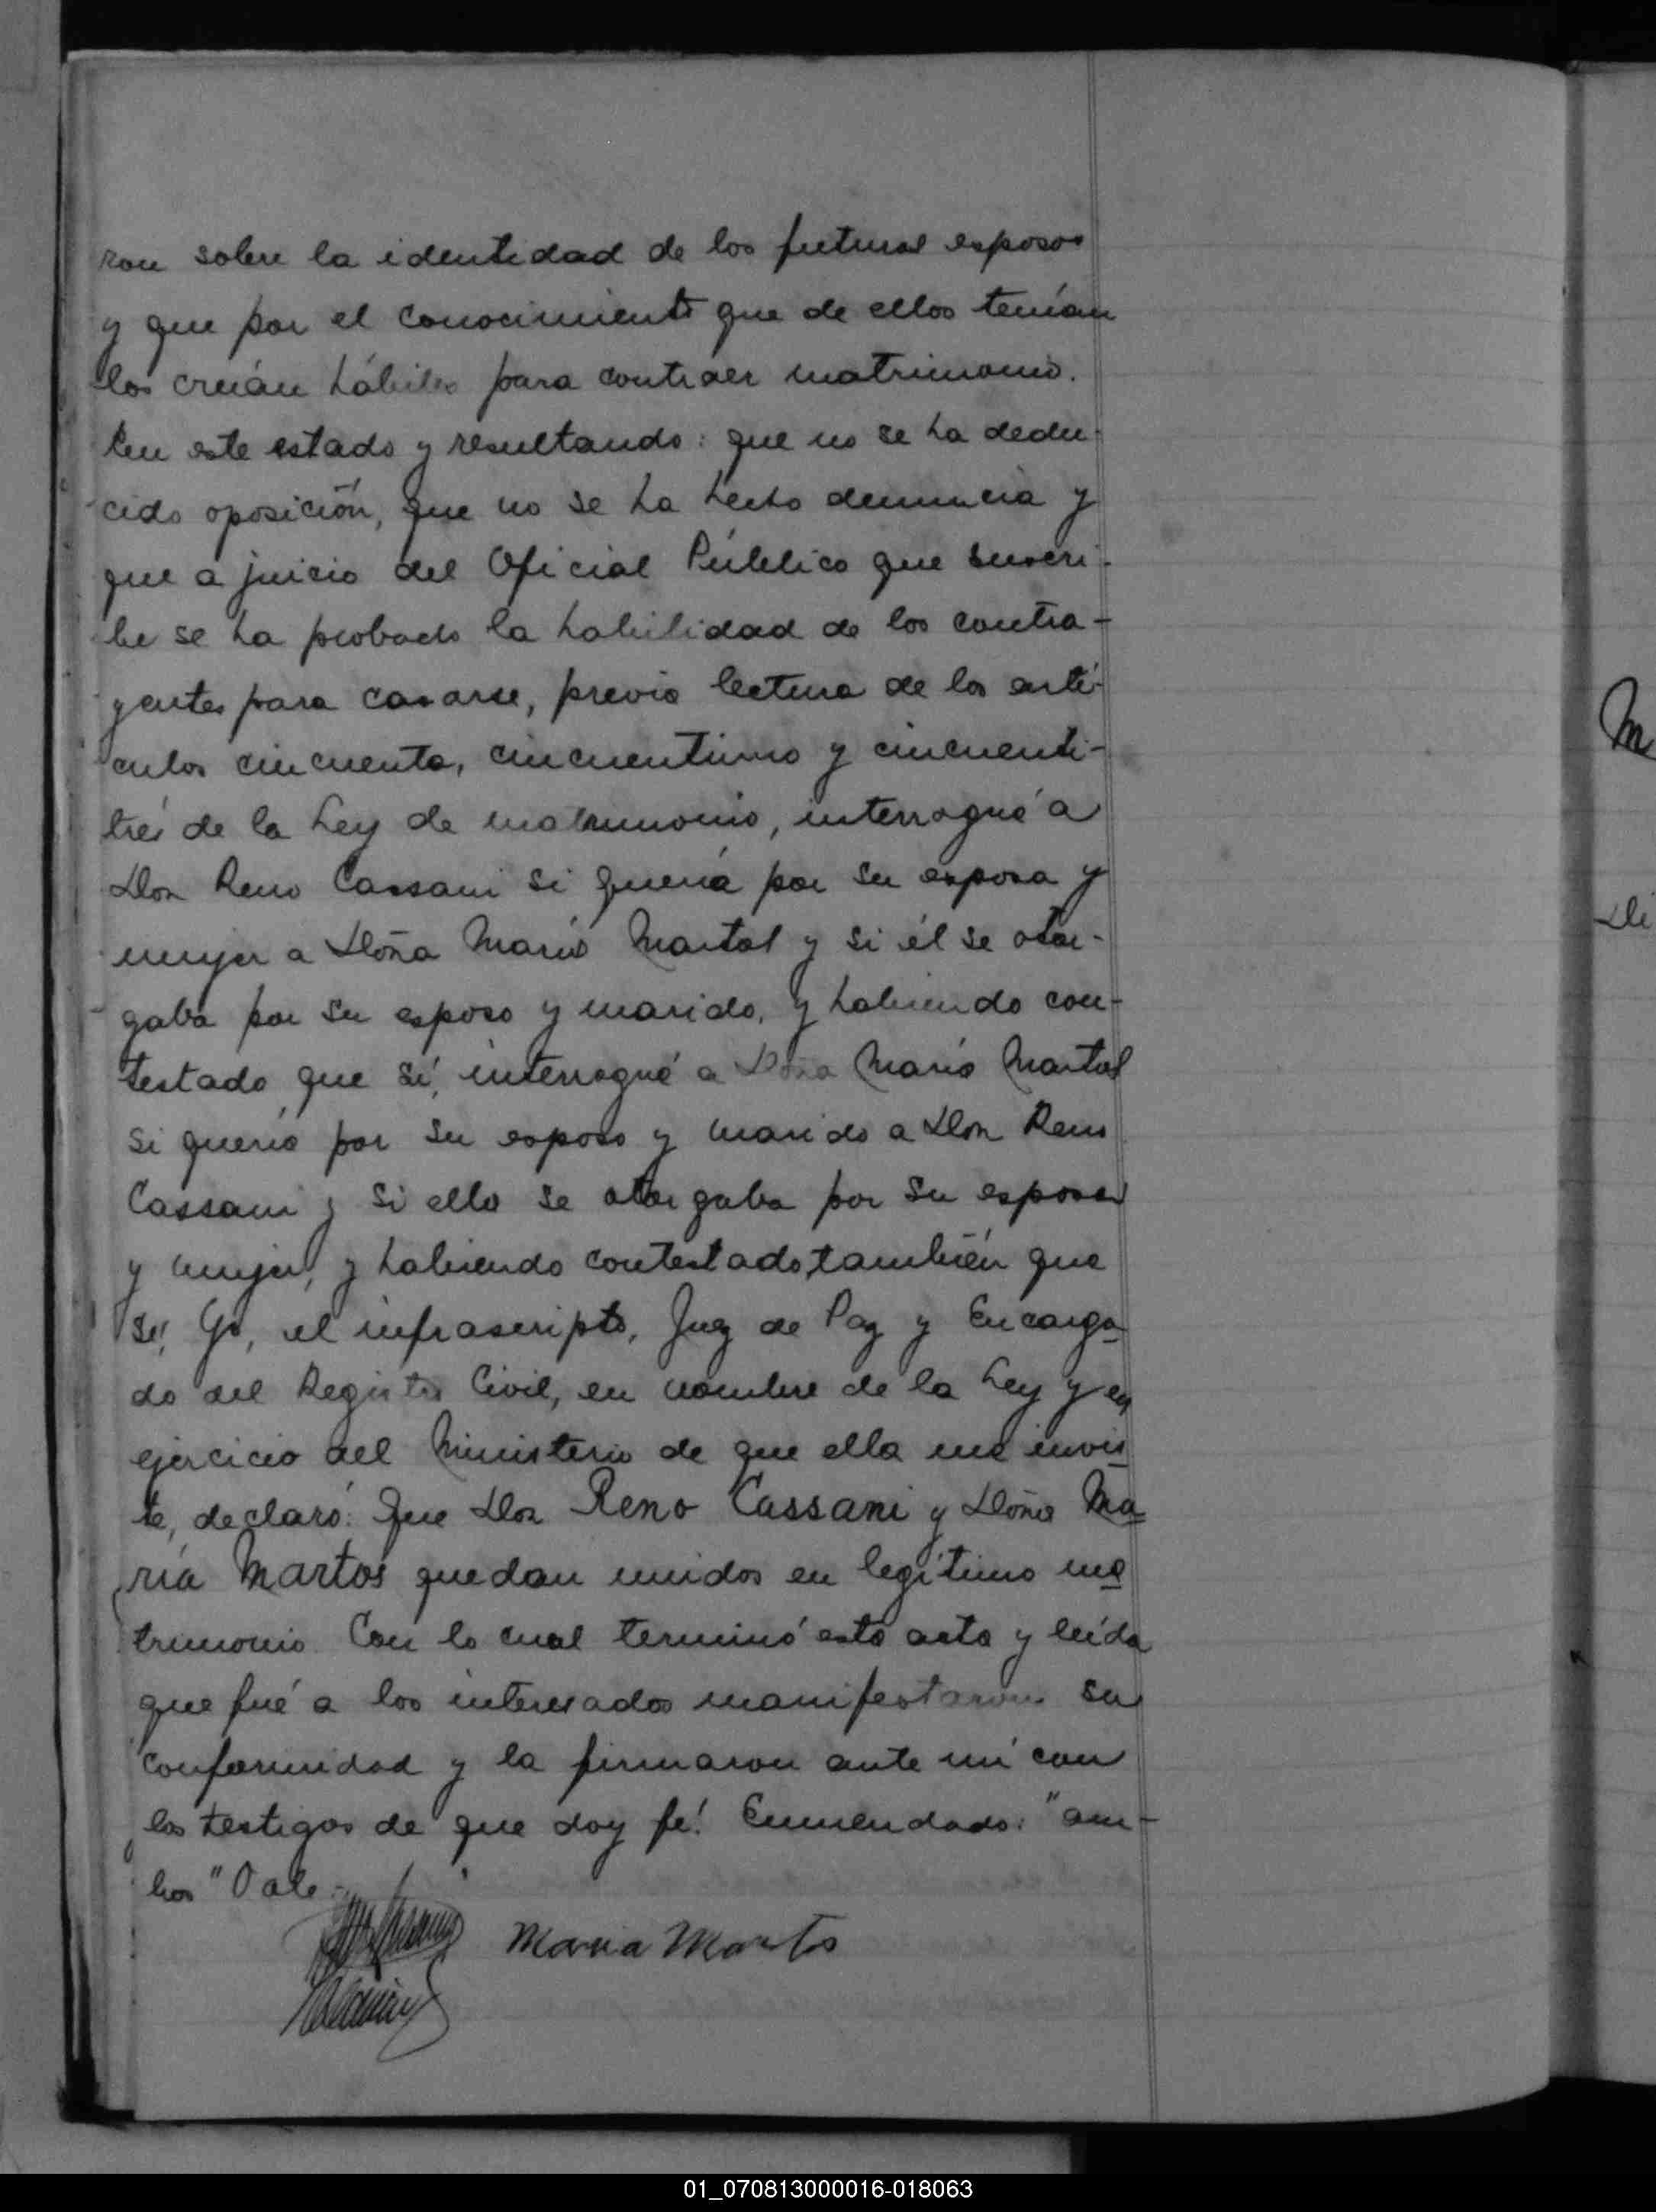 ron sobre la identidad de los futuros esposos
y que por el conocimiento que de ellos tenían
los creían hábiles para contraer matrimonio.
En este estado y resultando: que no se ha dedu-
cido oposición, que no se ha hecho denuncia y
que a juicio del Oficial Público que suscri-
be se ha probado la habilidad de los contra-
yentes para casarse, previa lectura de los artí-
culos cincuenta, cincuentiuno y cincuenti-
trés de la Ley de matrimonio, interrogué a
Don Reno Cassani si quería por su esposa y
mujer a Doña María Martos y si él se otor-
gaba por su esposo y marido, y habiendo con-
testado que sí, interrogué a Doña María Martos
si quería por su esposo y marido a Don Reno
Cassani y si ella se otorgaba por su esposa
y mujer, y habiendo contestado también que
sí, Yo, el infrascripto, Juez de Paz y Encarga
do del Registro Civil, en nombre de la Ley y en
ejercicio del Ministerio de que ella me invis
te, declaró: Que Don Reno Cassani y Doña Ma
ría Martos quedan unidos en legítimo ma
trimonio. Con lo cual terminó esta acta y leída
que fué a los interesados manifestaron su
conformidad y la firmaron ante mí con
los testigos de que doy fé! Enmendado: "am-
bos" Vale.-
Maria Martos
M
Di
01_070813000016-018063